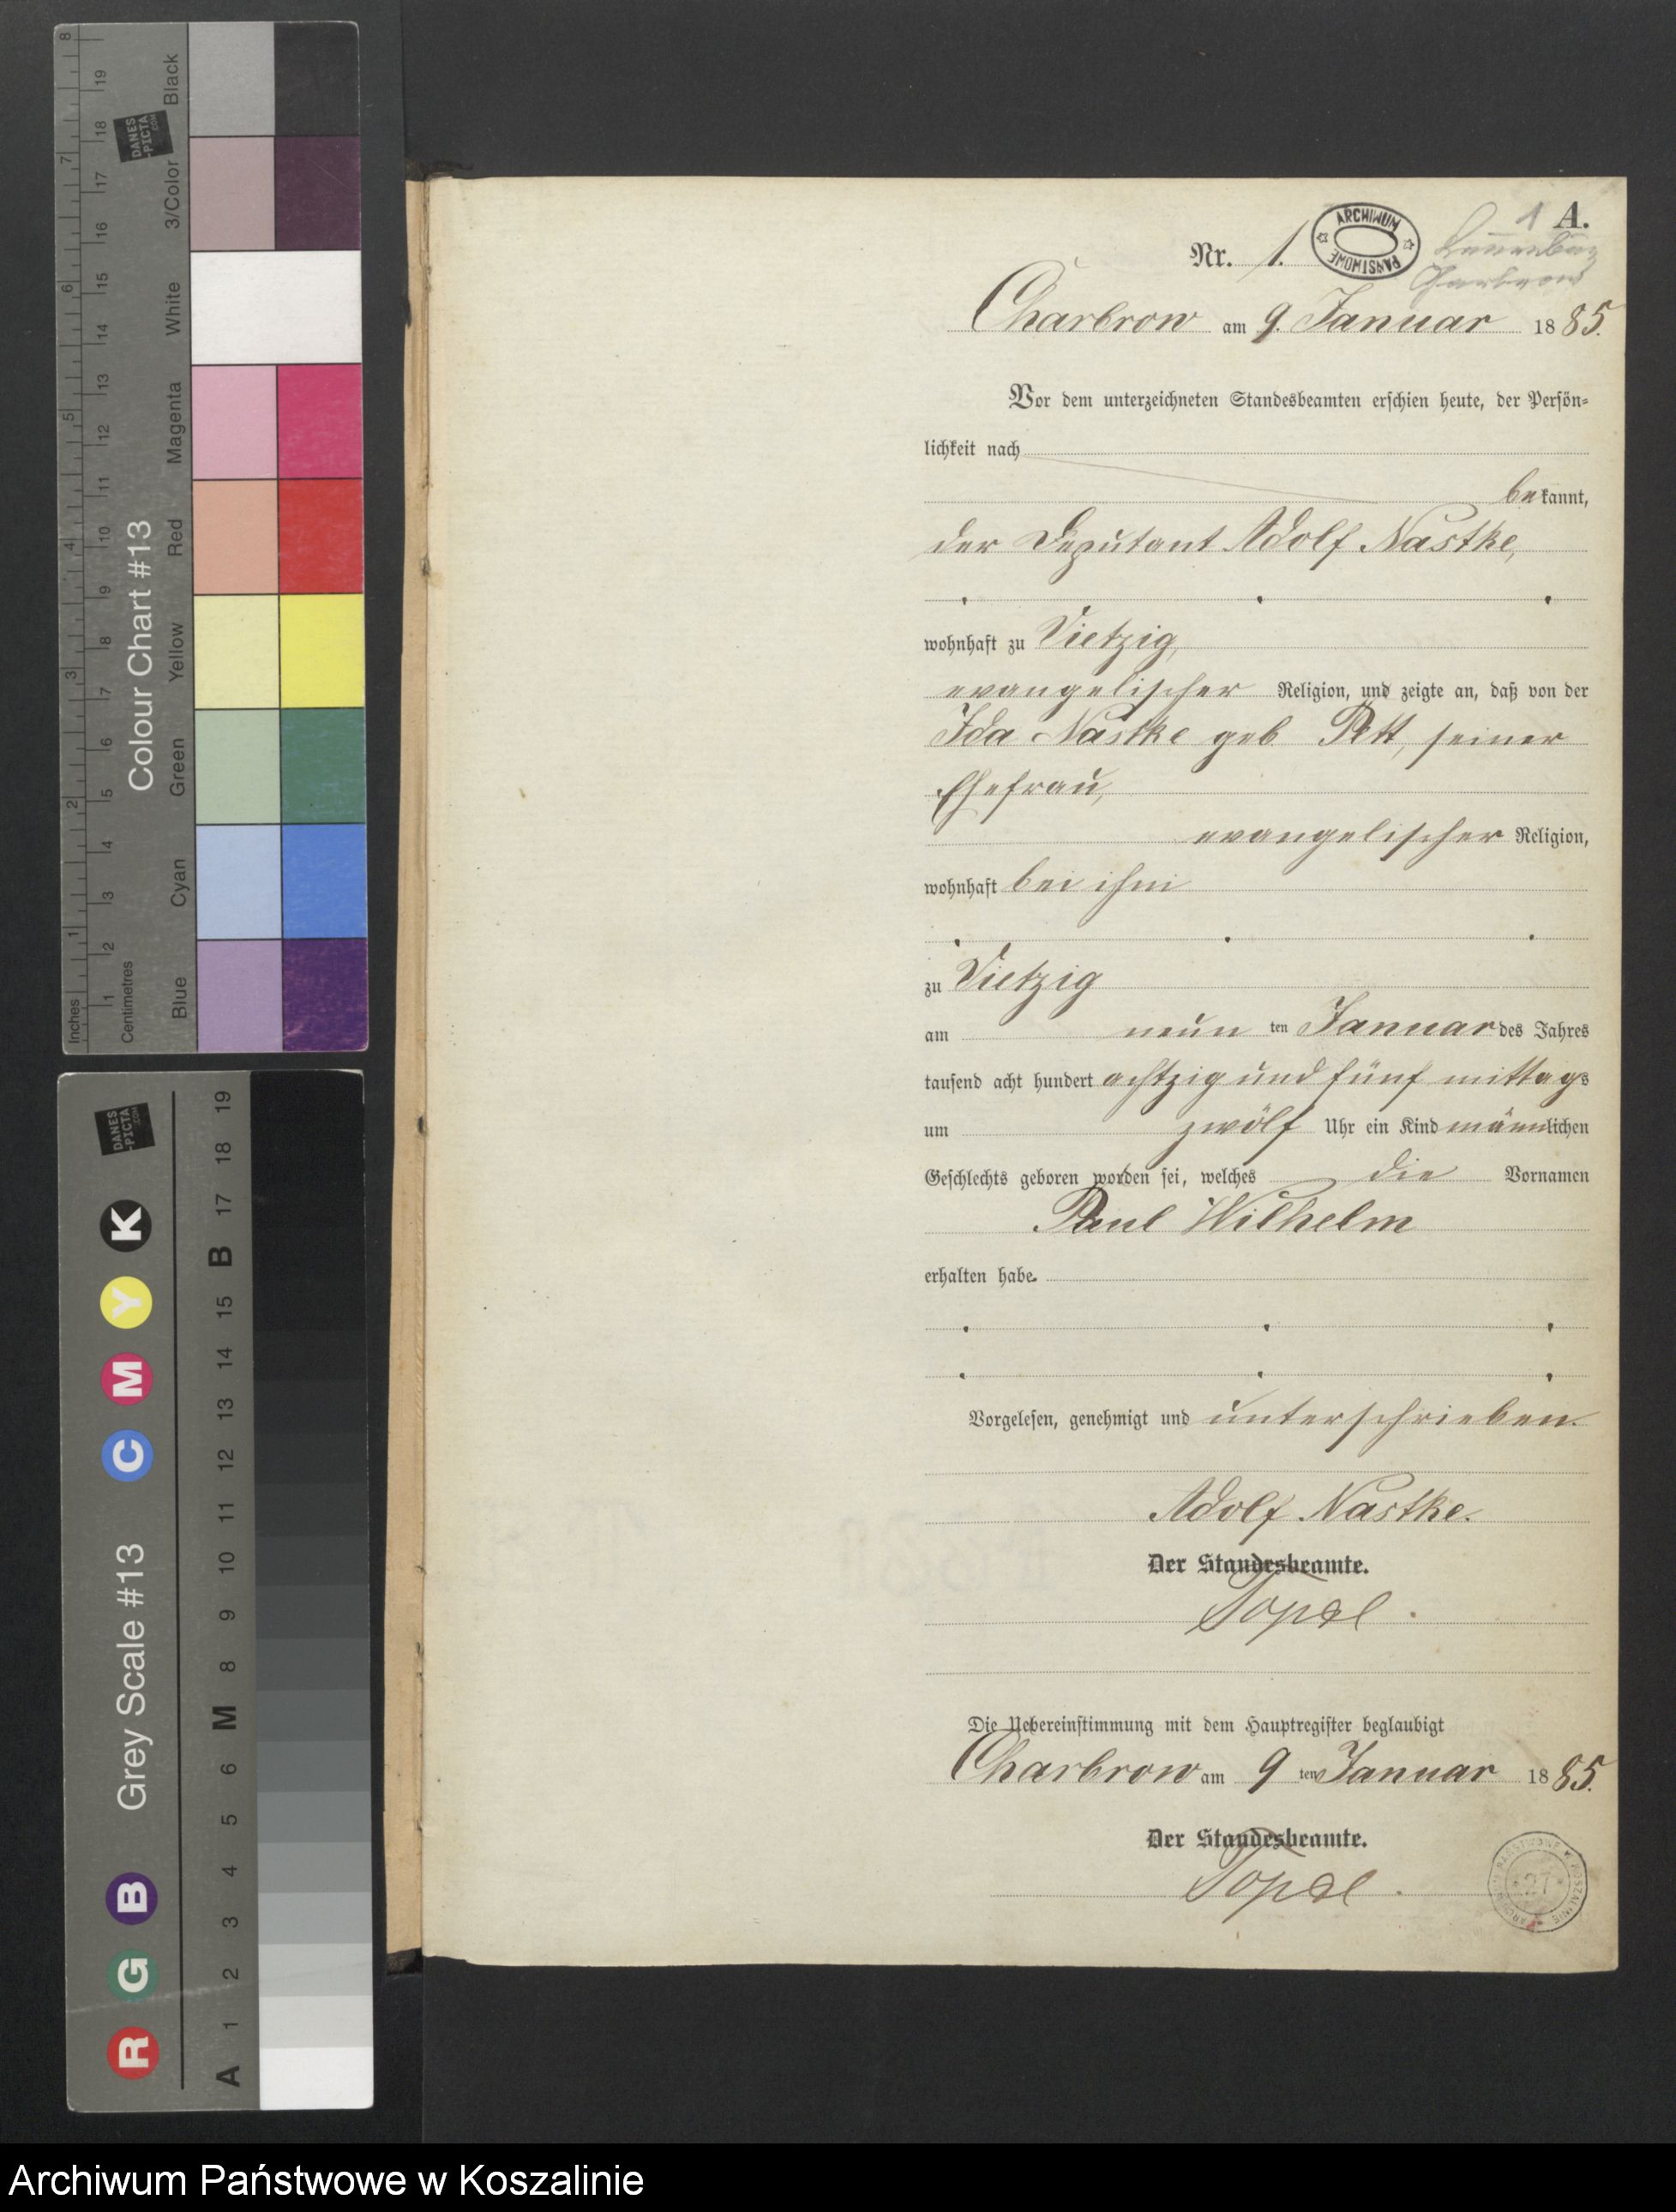 A.
1
Nr. 1.
ARCHIWUM PAŃSTWOWE
Lauenburg
Charbrow
Charbrow am 9. Januar 1885.
Vor dem unterzeichneten Standesbeamten erschien heute, der Persön-
lichkeit nach
bekannt,
der Deputant Adolf Nastke,
wohnhaft zu Vietzig,
evangelischer Religion, und zeigte an, daß von der
Ida Nastke geb. Pett, seiner
Ehefrau,
evangelischer Religion,
wohnhaft bei ihm
zu Vietzig
am neun ten Januar des Jahres
tausend acht hundert achtzig und fünf mittags
um zwölf Uhr ein Kind männlichen
Geschlechts geboren worden sei, welches die Vornamen
Paul Wilhelm
erhalten habe.
Vorgelesen, genehmigt und unterschrieben.
Adolf Nastke.
Der Standesbeamte.
Die Uebereinstimmung mit dem Hauptregister beglaubigt
Charbrow am 9 ten Januar 1885.
Der Standesbeamte.
27
Colour Chart #13
Blue Cyan Green Yellow Red Magenta White 3/Color Black
Inches 1 2 3 4 5 6 7 8
Centimetres 1 2 3 4 5 6 7 8 9 10 11 12 13 14 15 16 17 18 19
DANES-PICTA.COM
Grey Scale #13
R G B C M Y K
A 1 2 3 4 5 6 M 8 9 10 11 12 13 14 15 B 17 18 19
DANES-PICTA.COM
Archiwum Państwowe w Koszalinie